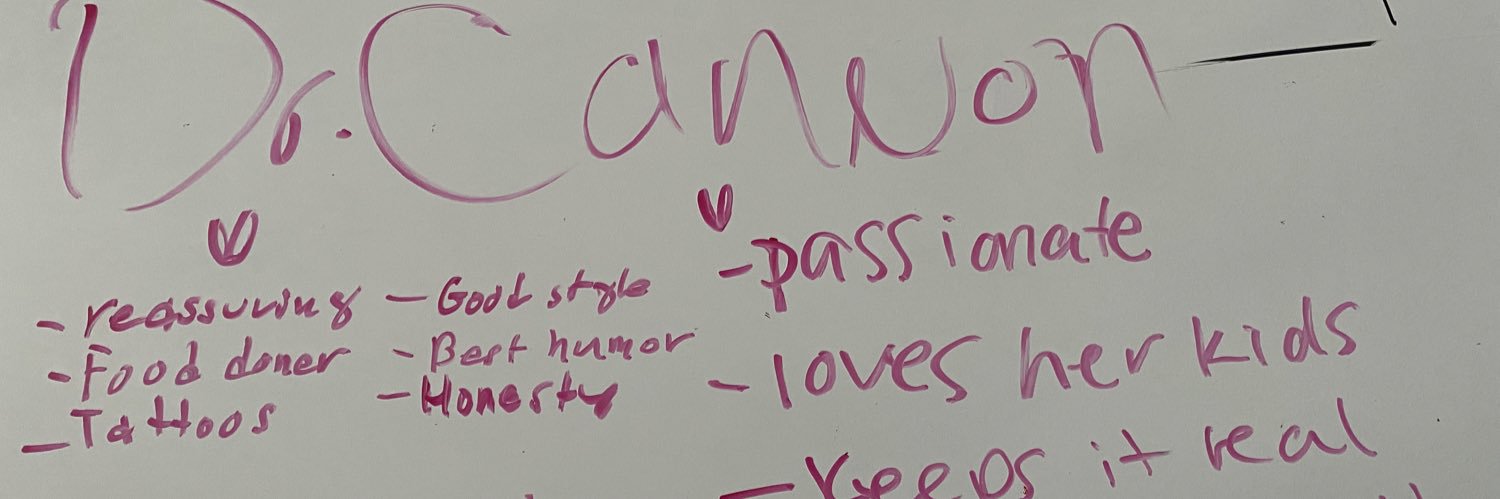 Dr. Cannon
- reassuring
- Food doner
- Tattoos
- Good style
- Best humor
- Honesty
- passionate
- loves her kids
- Keeps it real